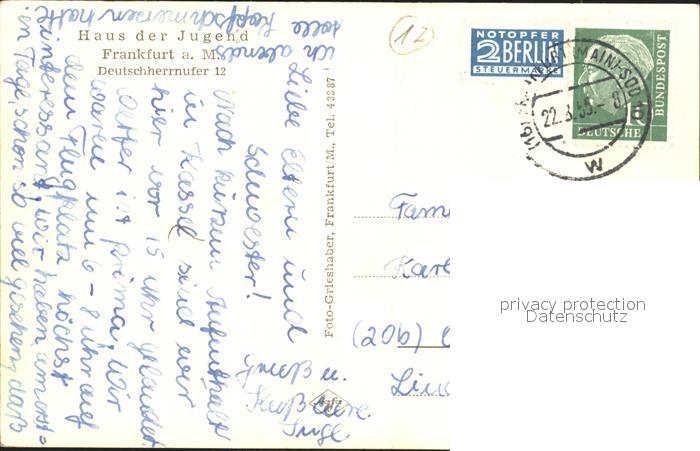 Haus der Jugend
Frankfurt a. M.
Deutschherrnufer 12
Liebe Eltern und
Schwester!
Nach kurzem Aufenthalt
in Kassel sind wir
hier vor 15 Uhr gelandet.
Wetter ist prima, Wir
waren um 6 - 8 Uhr auf
dem Flugplatz höchst
interessant, wir haben am erst=
en Tage schon so viel gesehen, daß
ich abends
tolle Kopfschmerzen hatte
Gruß u.
Kuß Eure
Inge.
Foto-Grieshaber, Frankfurt/M., Tel. 43387
12
NOTOPFER
2 BERLIN
STEUERMARKE
DEUTSCHE
BUNDESPOST
10
(MAIN)-SÜD
22.3.55.-8
w
Fam
Karl
(20b)
privacy protection
Datenschutz